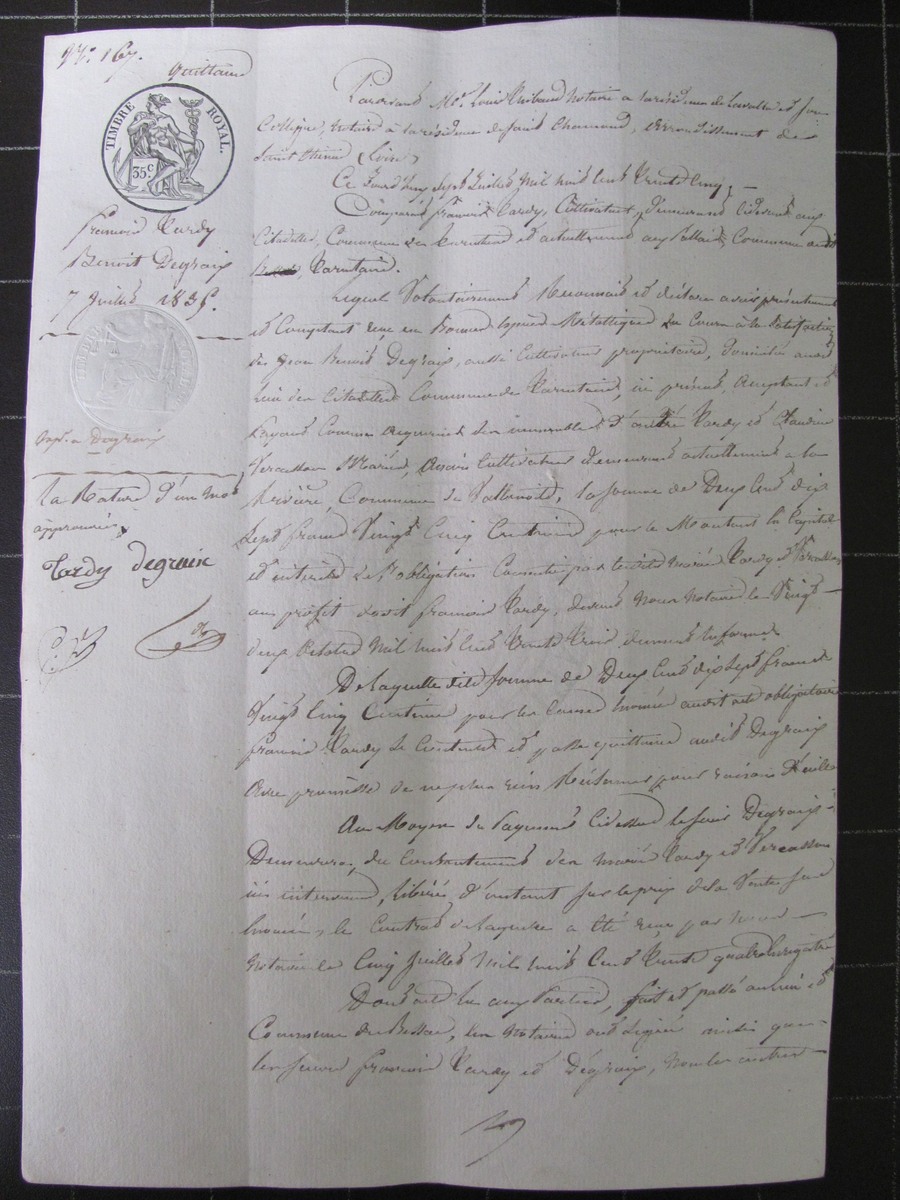 N.º 167.
quittance
TIMBRE ROYAL.
35 c
françois Tardy
Benoit Degraix
7 Juillet 1835.
La Rature d'un mot
approuvée
Tardy degraix
Pardevant Me. Louis notaire a la résidence de Lavalla et son
Collègue, notaire à la résidence de Saint Chamond, arrondissement de
Saint Etienne (Loire)
Ce jourd'huy sept Juillet mil huit cent trente cinq,
Comparait françois Tardy, Cultivateur, demeurant cidevant aux
Citadelles, Commune de et actuellement aux Commune
Lequel Volontairement Reconnait et déclare avoir présentement
et Comptant reçu en Bonnes Espèces Métalliques du Cours à la satisfaction
de Jean Benoit Degraix, aussi Cultivateur propriétaire, domicilié audit
lieu des Citadelles Commune de ici présent, acceptant et
Payant Comme acquéreur des immeubles d'autre Tardy et Claudine
Vercasson Mariés, aussi Cultivateurs demeurant actuellement à la
Rivière, Commune de la somme de Deux Cent dix
sept francs Vingt Cinq Centimes pour le Montant en Capital
et intérêts de l'obligation Consentie par lesdits Mariés Tardy et Vercasson
au profit dudit françois Tardy, devant Nous Notaire le Vingt
deux octobre Mil huit Cent Trente Trois, dument en forme
De laquelle dite Somme de Deux Cent dix sept francs
Vingt Cinq Centimes pour les Causes énoncées audit acte obligatoire
françois Tardy se Contente et passe quittance audit Degraix
avec promesse de ne plus rien Réclamer pour raison d'icelle
Au Moyen du Payement cidessus le sieur Degraix
Demeurera, du Consentement des mariés Tardy et Vercasson
ici intervenus, libéré d'autant sur le prix de la Vente sus
énoncée, le Contrat de laquelle a été reçu par nous
Notaire le Cinq Juillet Mil huit Cent Trente quatre enregistré
Dont acte lu aux Parties, fait et passé au lieu et
Commune de Bessat, les Notaires ont signé ainsi que
les sieurs françois Tardy et Degraix, non les autres